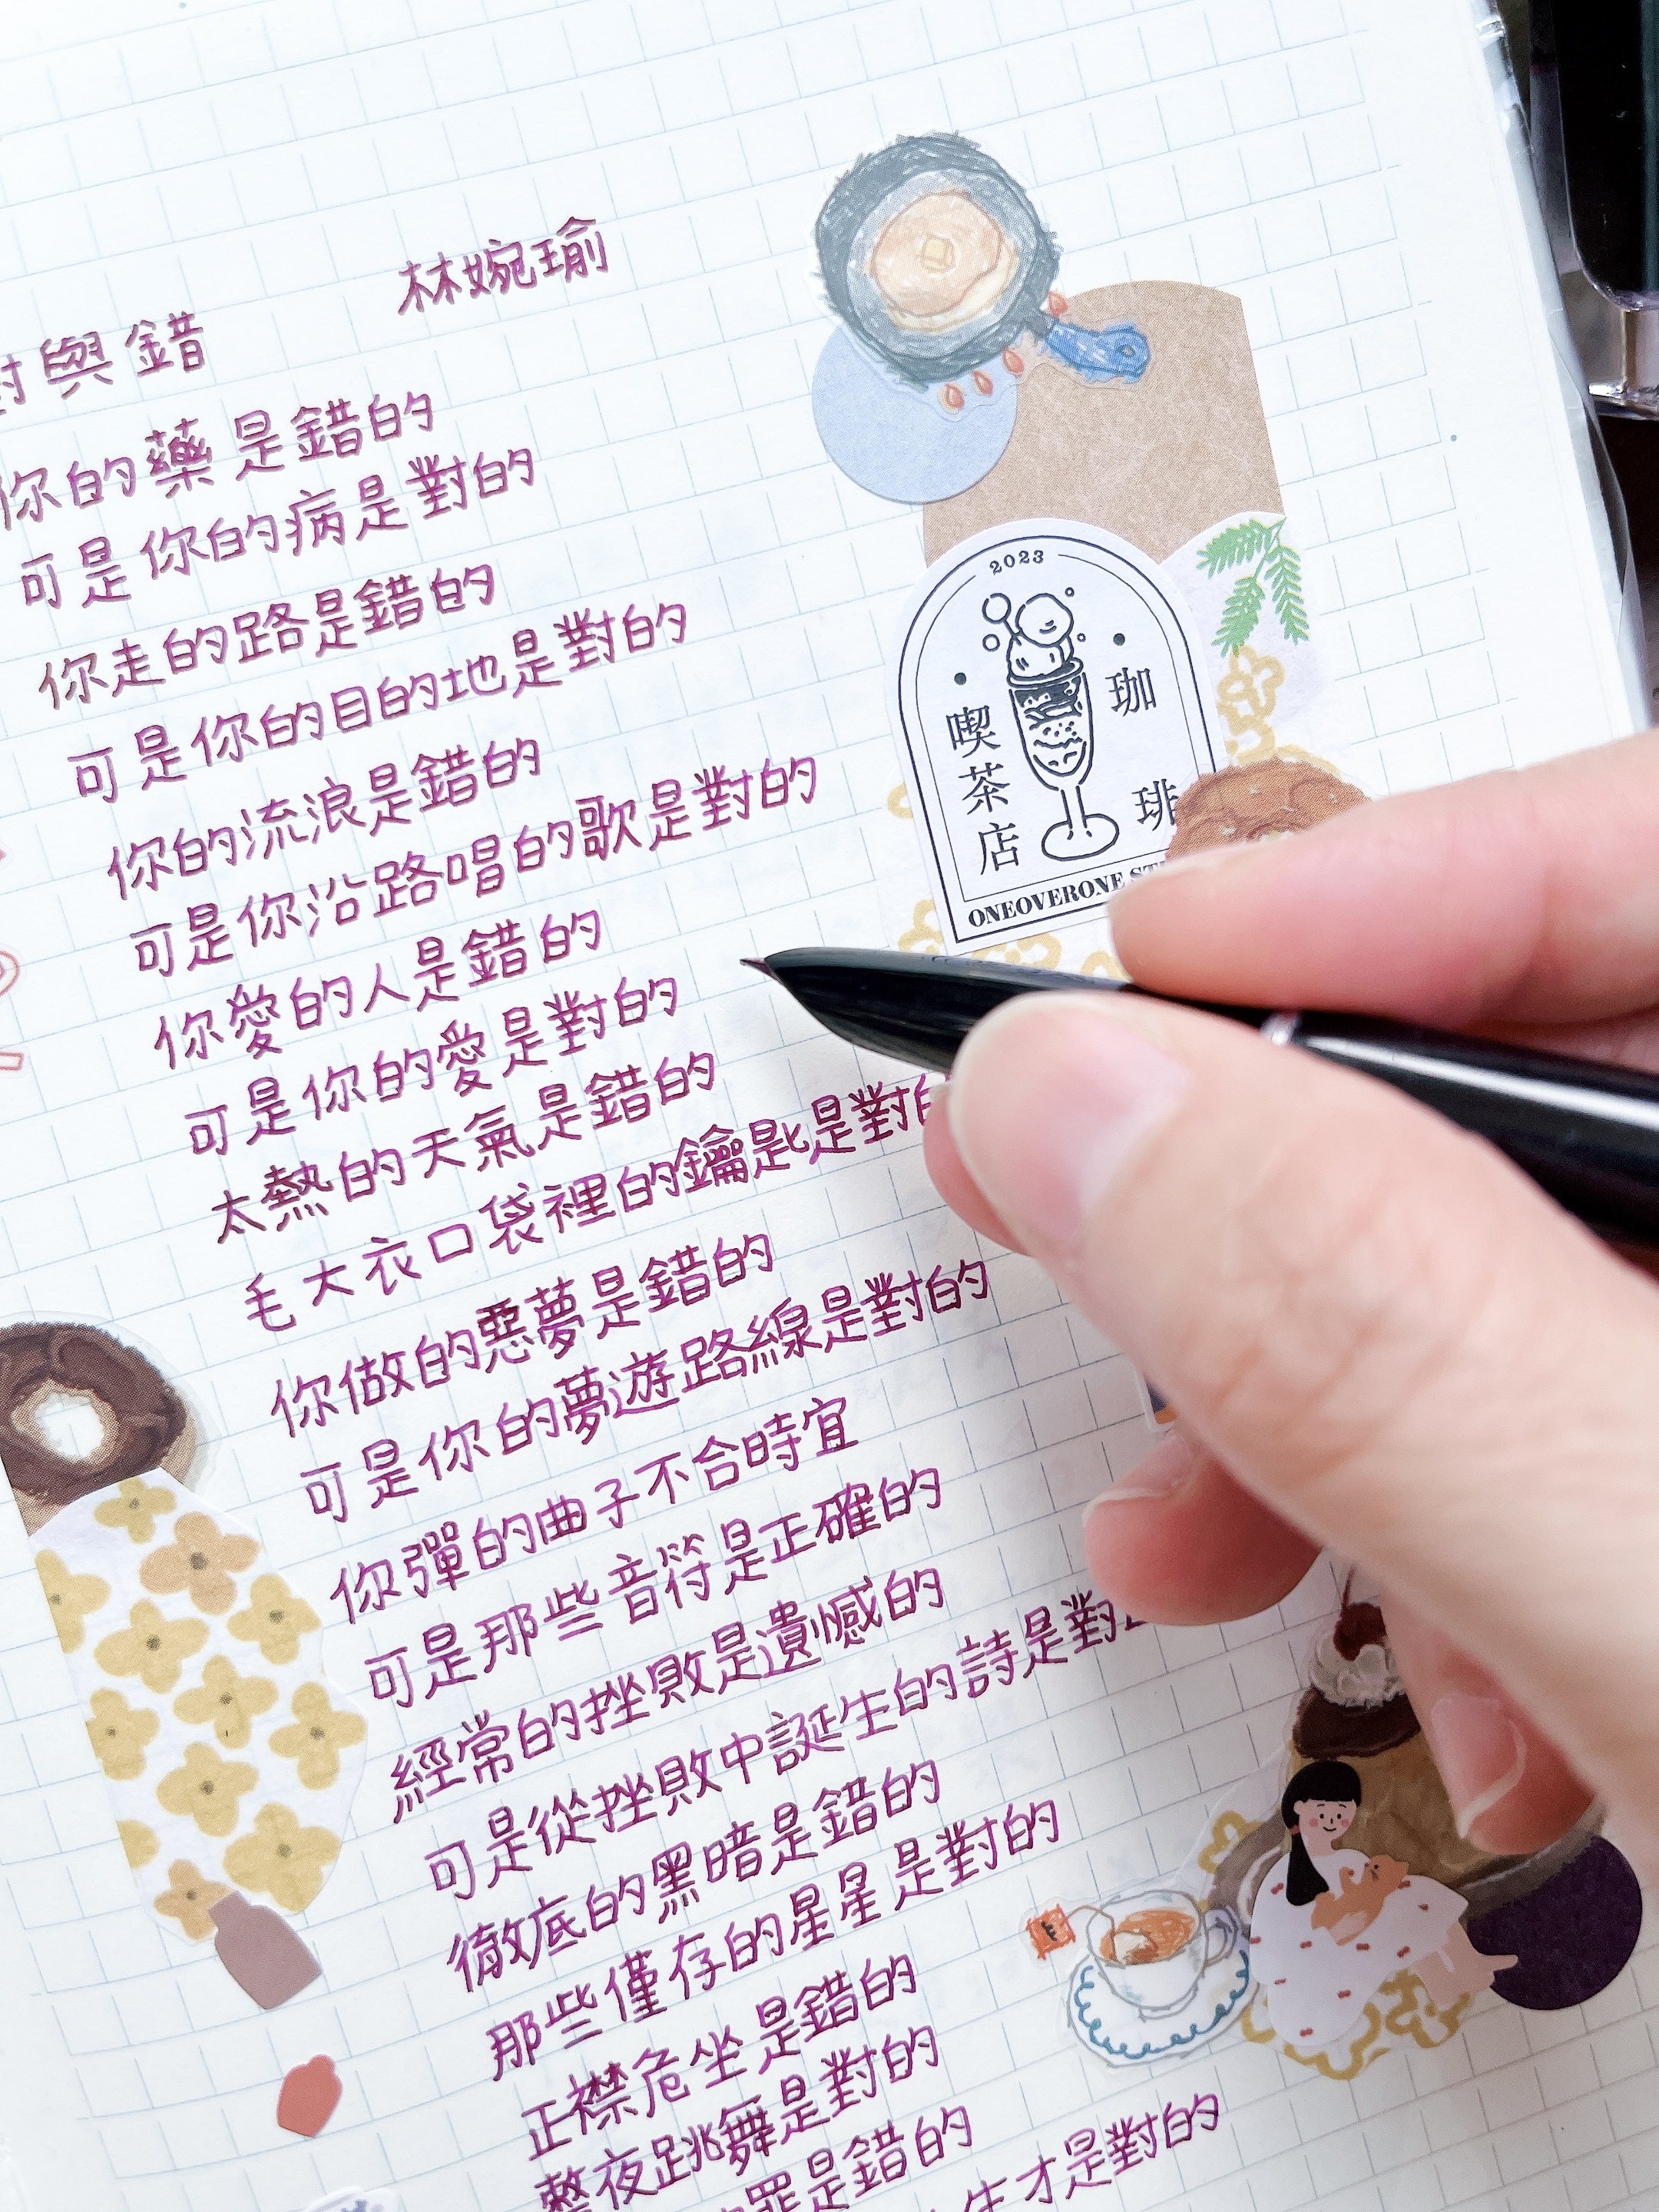 林婉瑜
對與錯
你的藥是錯的
可是你的病是對的
你走的路是錯的
可是你的目的地是對的
你的流浪是錯的
可是你沿路唱的歌是對的
你愛的人是錯的
可是你的愛是對的
太熱的天氣是錯的
毛大衣口袋裡的鑰匙是對的
你做的惡夢是錯的
可是你的夢遊路線是對的
你彈的曲子不合時宜
可是那些音符是正確的
經常的挫敗是遺憾的
可是從挫敗中誕生的詩是對
徹底的黑暗是錯的
那些僅存的星星是對的
正襟危坐是錯的
整夜跳舞是對的
罪是錯的
生才是對的
2023
珈琲
喫茶店
ONEOVERONE